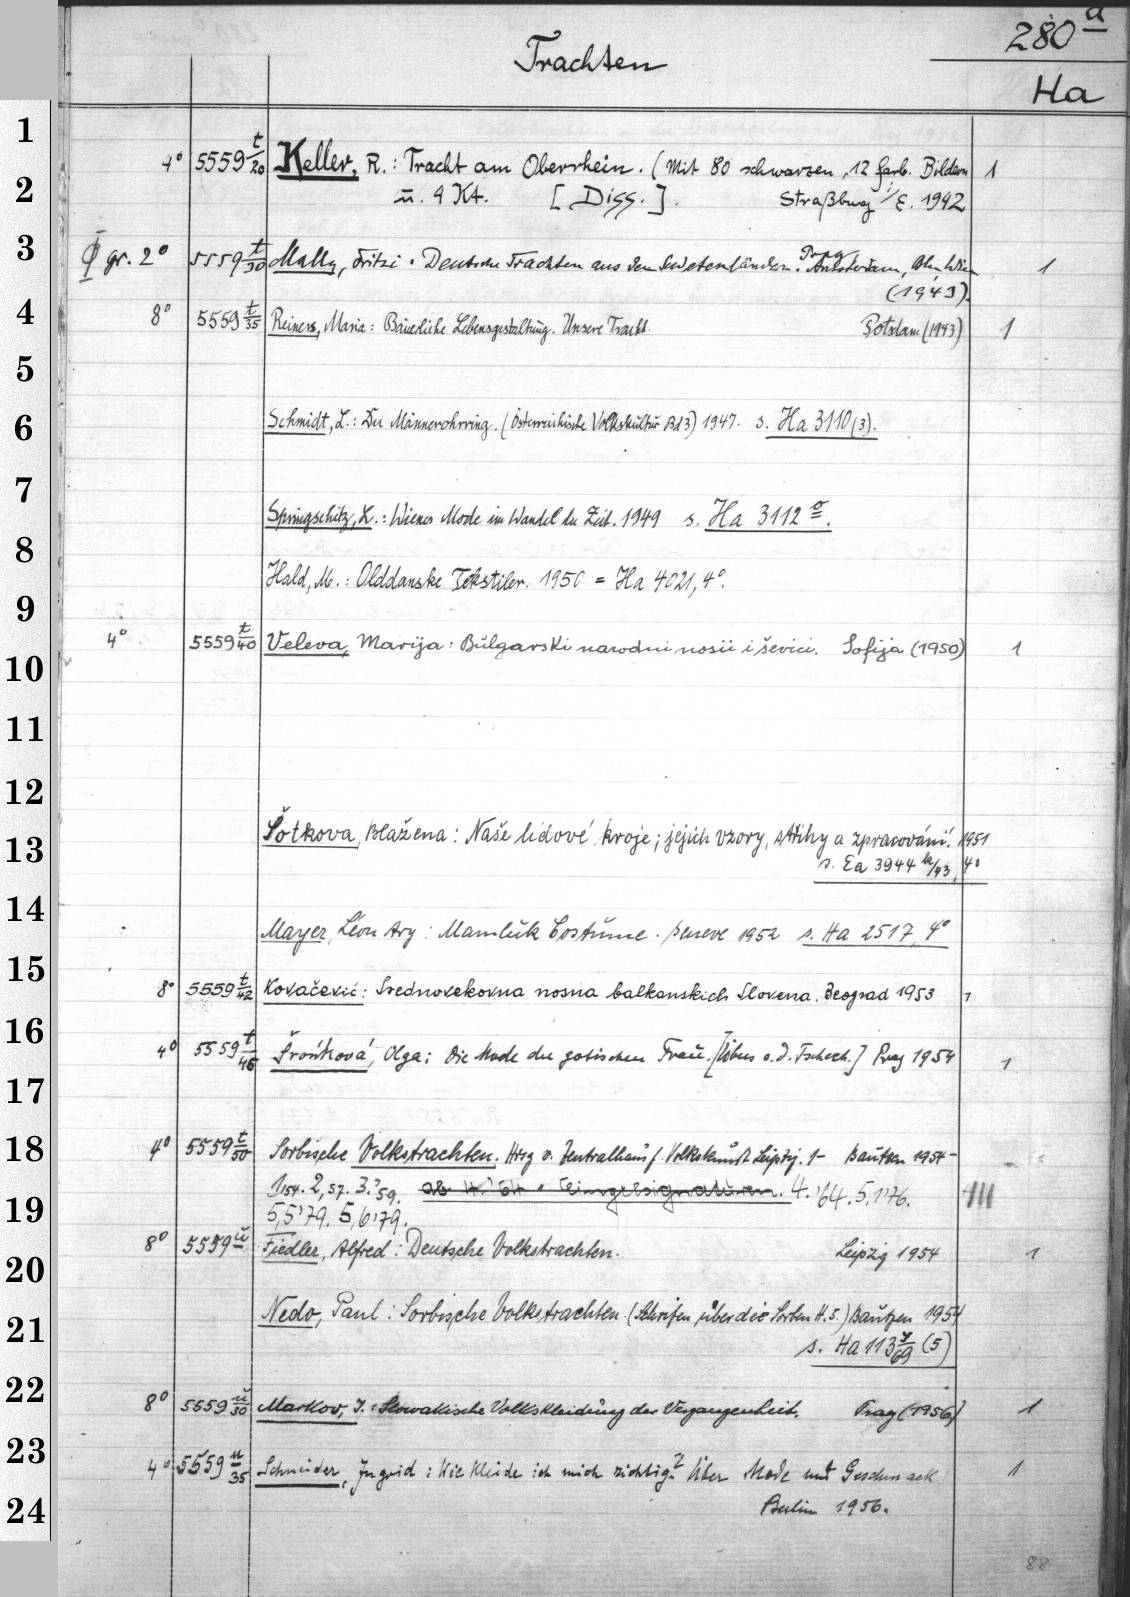 280 a
Trachten
Ha
1
4° 5559 t/20 Keller, R.: Tracht am Oberrhein. (Mit 80 schwarzen, 12 farb. Bildern 1
2
u. 4 Kt. [Diss.]. Straßburg i/E. 1942
3
gr. 2° 5559 t/30 Mally, Fritzi: Deutsche Trachten aus den Sudetenländern. Prag, Amsterdam, Bln, Wien 1
(1943).
4
8° 5559 t/35 Reiners, Maria: Bäuerliche Lebensgestaltung. Unsere Tracht. Potsdam (1943) 1
5
6
Schmidt, L.: Der Männerohrring. (Österreichische Volkskultur Bd 3) 1947. s. Ha 3110 (3).
7
Springschitz, L.: Wiener Mode im Wandel der Zeit. 1949 s. Ha 3112 o.
8
Hald, M.: Olddanske Tekstiler. 1950 = Ha 4021, 4°.
9
4° 5559 t/40 Veleva, Marija: Bŭlgarski narodni nosii i ševici. Sofija (1950) 1
10
11
12
13
Šotkova, Blažena: Naše lidové kroje; jejich vzory, střihy a zpracování. 1951
s. Ea 3944 k/93, 4°
14
Mayer, Léon Ary: Mamlūk Costume. Geneve 1952 s. Ha 2517, 4°
15
8° 5559 t/42 Kovačević: Srednovekovna nosna balkanskich Slovena. Beograd 1953 1
16
4° 5559 t/46 Šroňková, Olga: Die Mode der gotischen Frau. [Übers a. d. Tschech.] Prag 1954 1
17
18
4° 5559 t/50 Sorbische Volkstrachten. Hrsg v. Zentralhaus f. Volkskunst Leipzig. 1- Bautzen 1954-
1,'54. 2,'57. 3,'59. ab 4.'64 = Einzelsignaturen. 4.'64. 5,1'76.
19
5,5'79. 5,6'79.
8° 5559 u Fiedler, Alfred: Deutsche Volkstrachten. Leipzig 1954 1
20
Nedo, Paul: Sorbische Volkstrachten. (Schriften über die Sorben H. 5.) Bautzen 1954
21
s. Ha 113 y/69 (5)
22
8° 5559 u/30 Markov, J.: Slowakische Volkskleidung der Vergangenheit. Prag (1956) 1
23
4° 5559 u/35 Schneider, Ingrid: Wie kleide ich mich richtig? Über Mode und Geschmack 1
24
Berlin 1956.
88